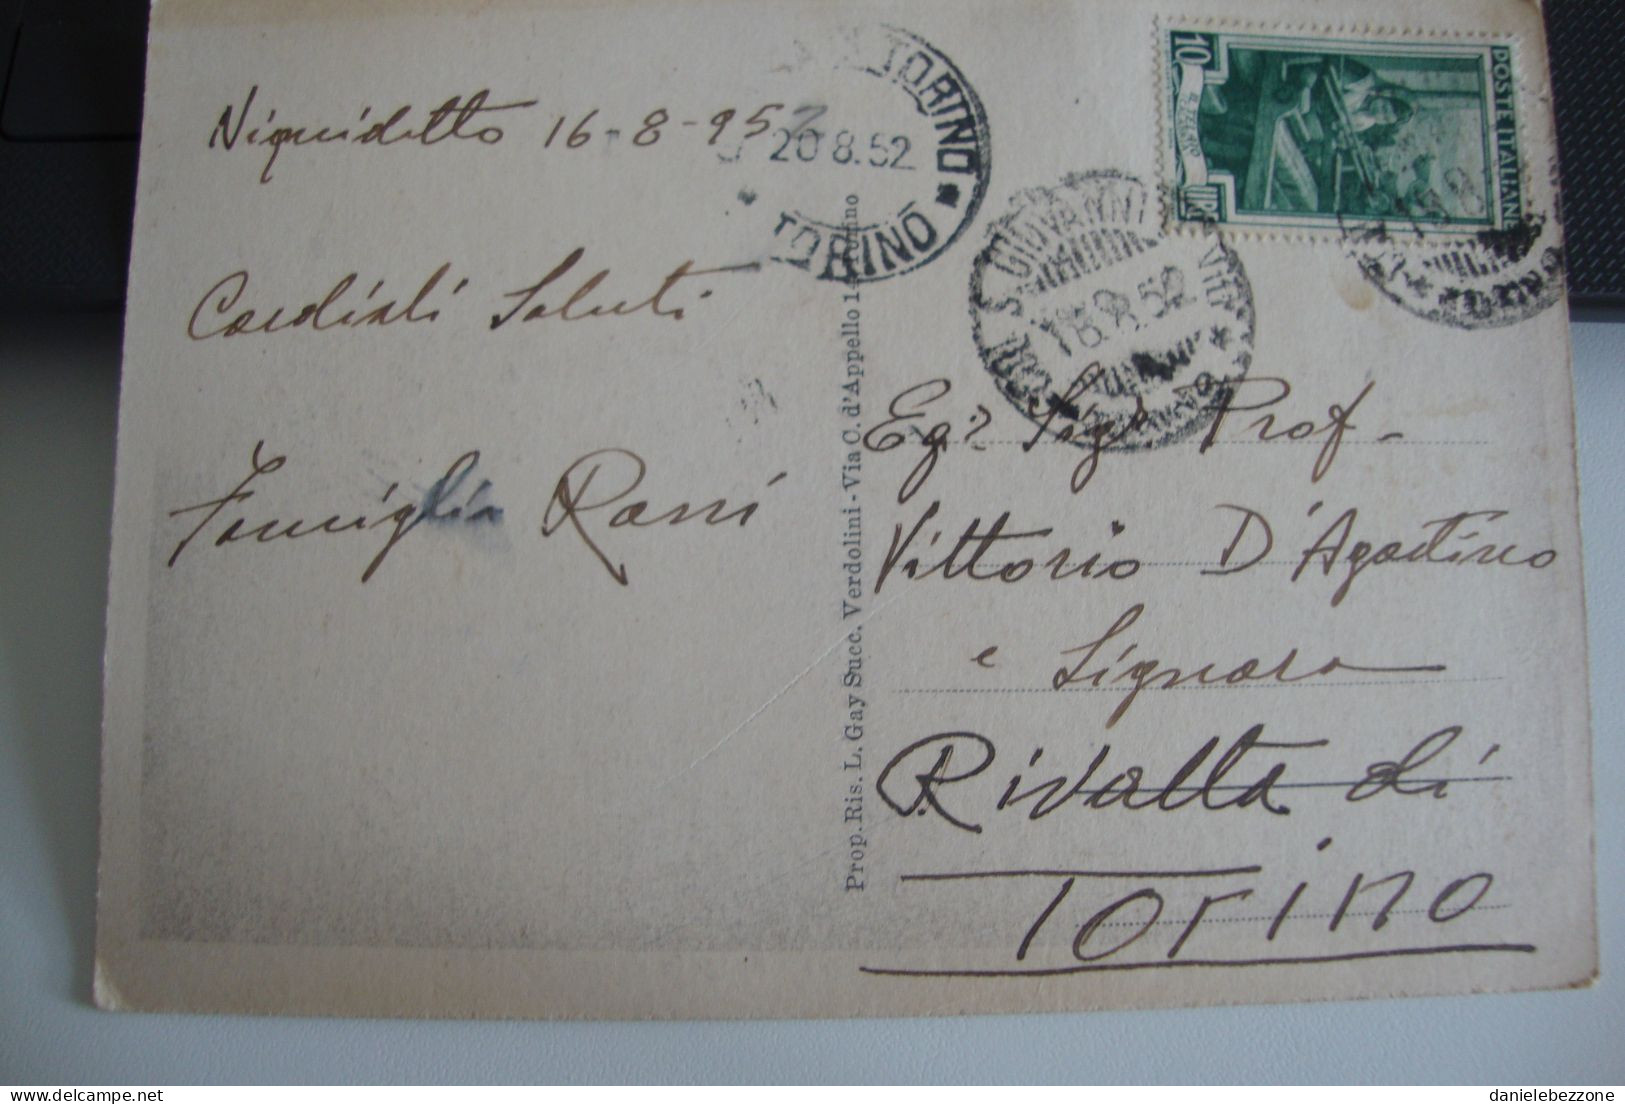 Niquidetto 16-8-952
Cordiali Saluti
Famiglia Rossi
TORINO
20 8.52
TORINO
Prop. Ris. L. Gay Succ. Verdolini - Via C. d'Appello 14 Torino
S. GIOVANNI
18.8.52
10
LIRE
POSTE ITALIANE
Eg? Sigr. Prof-
Vittorio D'Agostino
e Signora
Rivalta di
Torino
delcampe.net
danielebezzone